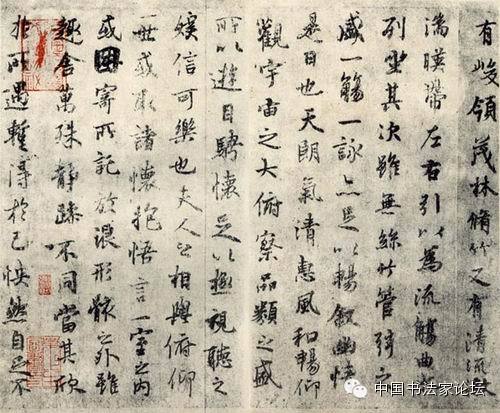 有峻領茂林脩竹又有清流
湍暎帶左右引以為流觴曲
列坐其次雖無絲竹管弦之
盛一觴一詠亦足以暢敘幽情
是日也天朗氣清惠風和暢仰
觀宇宙之大俯察品類之盛
所以遊目騁懷足以極視聽之
娛信可樂也夫人之相與俯仰
一世或取諸懷抱悟言一室之內
或因寄所託放浪形骸之外雖
趣舍萬殊靜躁不同當其欣
於所遇暫得於己怏然自足不
中国书法家论坛